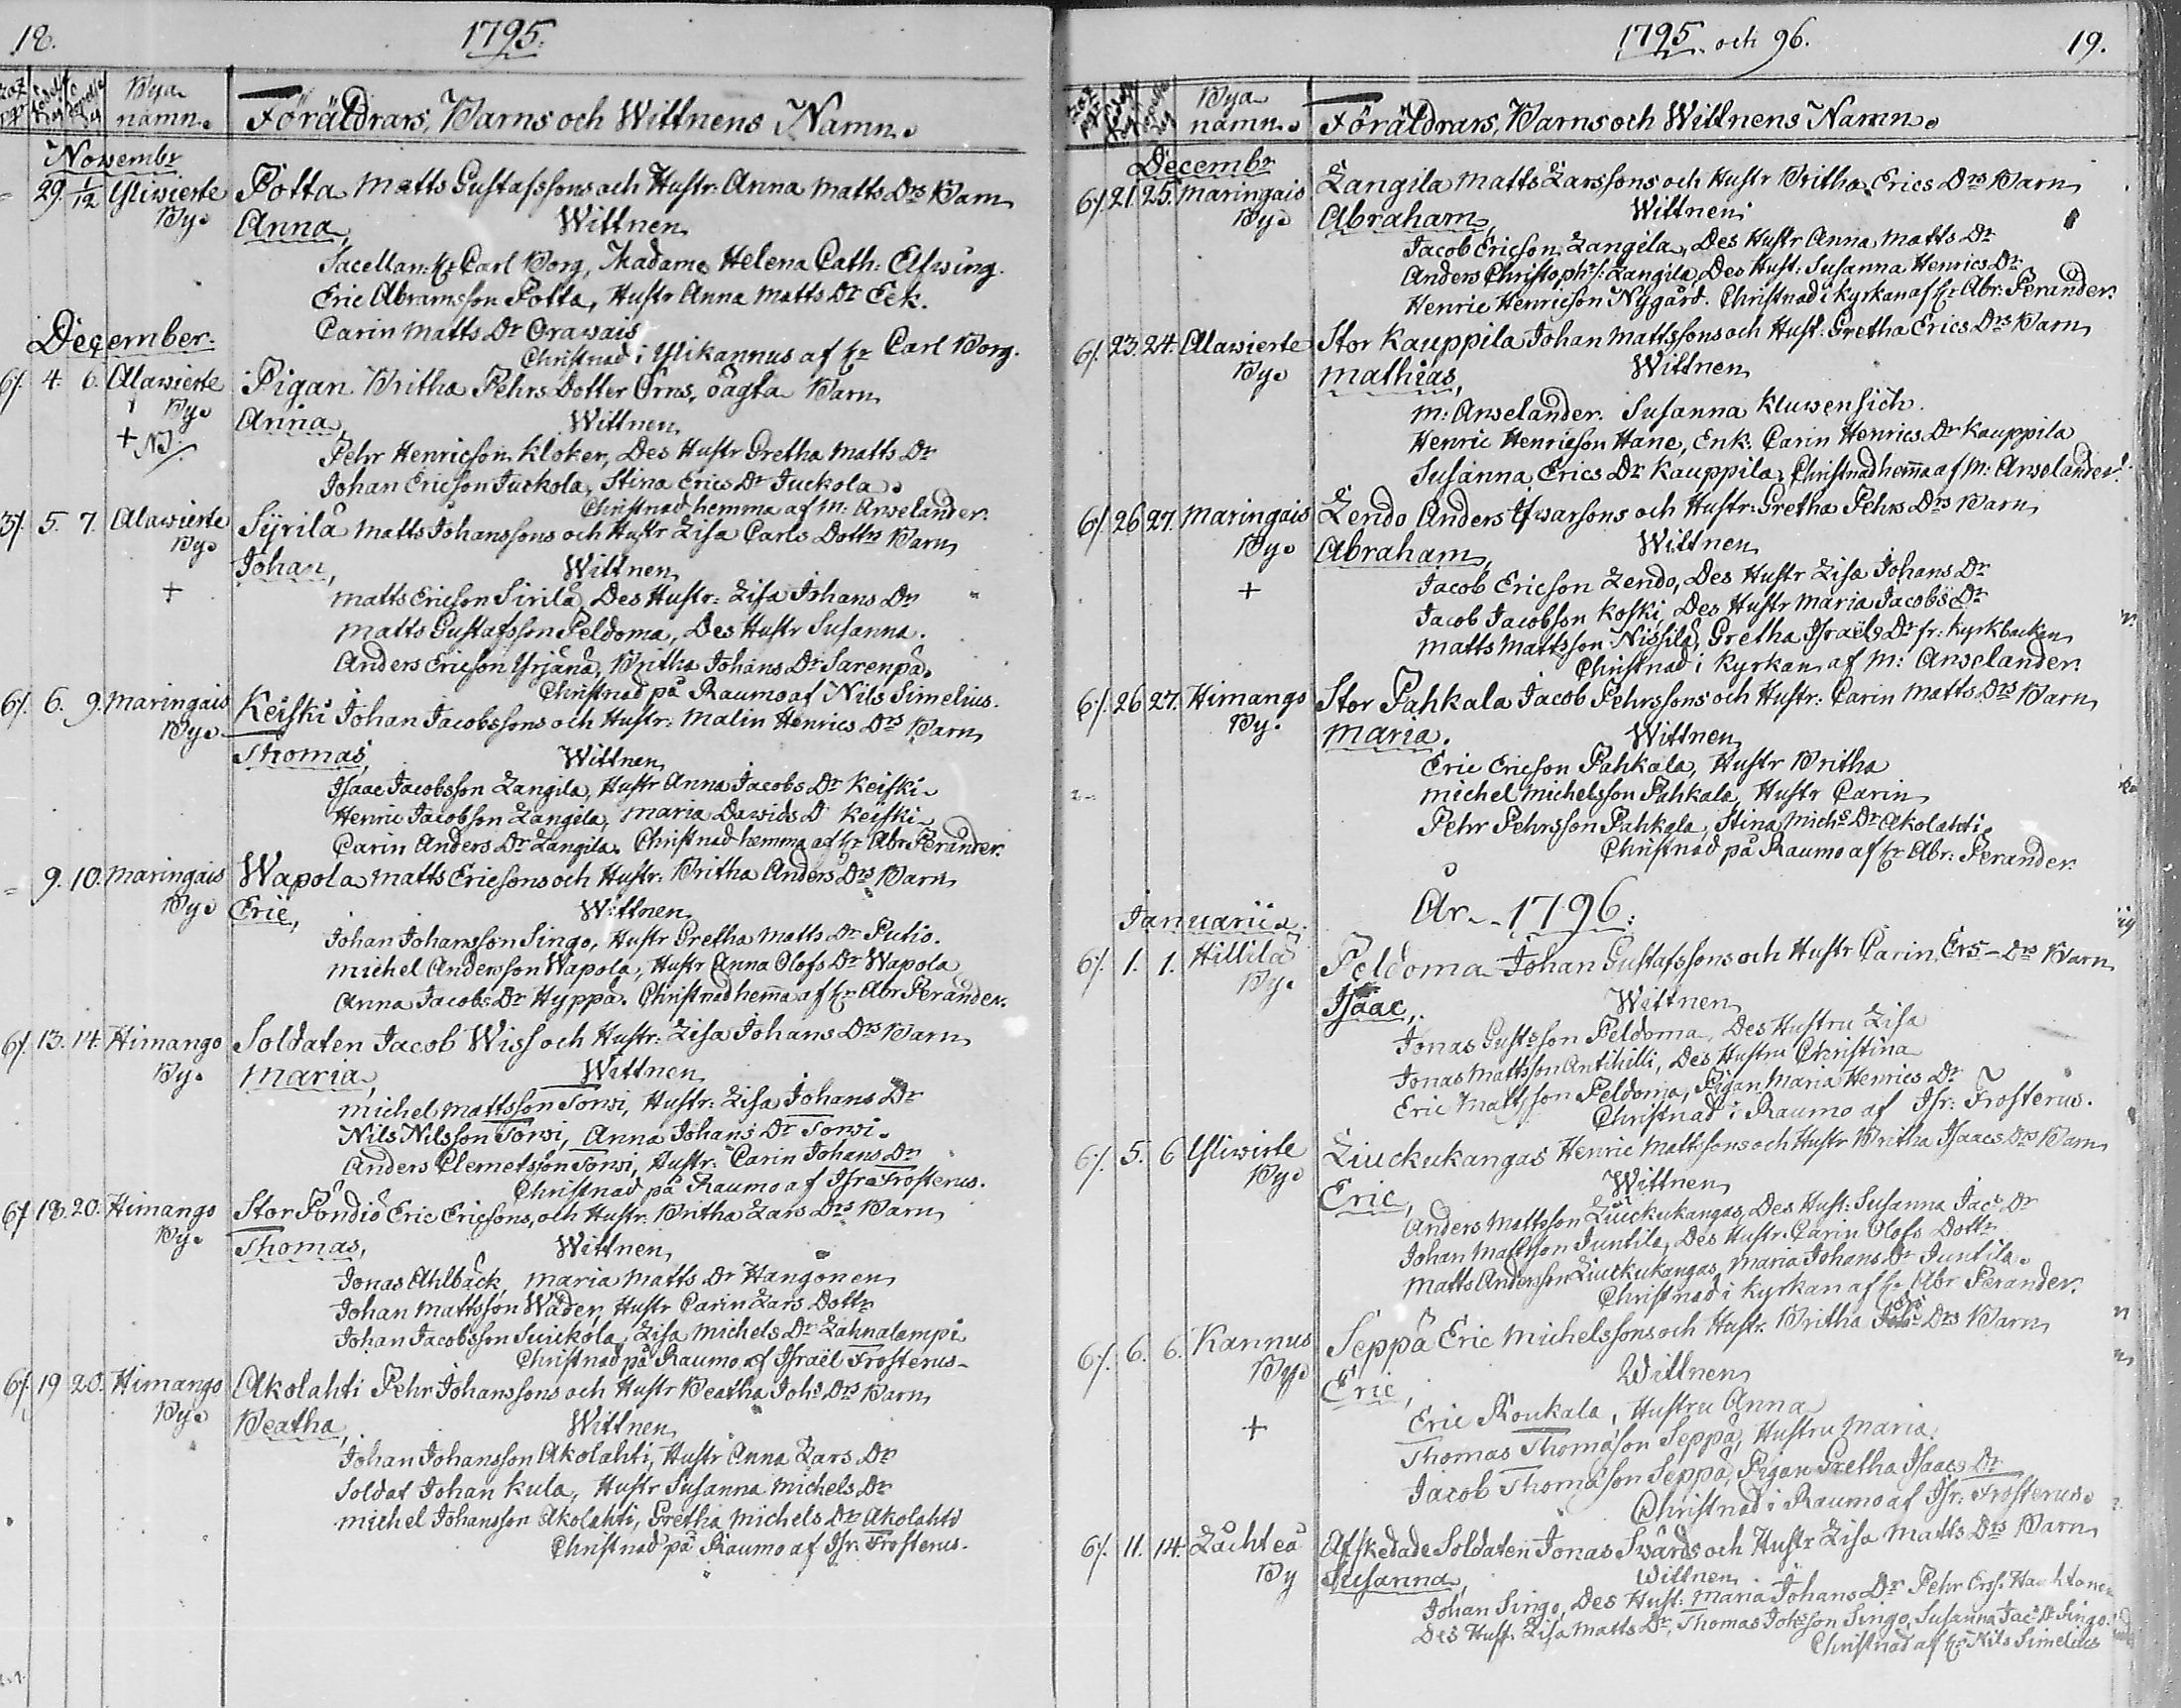 18.
1795.
Bya
namn.
Föräldrars, Barns och Wittnens Namn.
Novembr
29. 1/12 Yliwierte Potta Matts Gustafssons och Hustr. Anna Matts Drs Barn
By. Anna, Wittnen
Sacellan: Hr Carl Borg, Madame Helena Cath: Elfwing.
Eric Abramsson Potta, Hustr Anna Matts Dr Eek.
Carin Matts Dr Orawais
Christnad i Ylikannus af Hr Carl Borg.
December.
6/. 4. 6. Alawierte Pigan Britha Pehrs Dotter Örns, öägta Barn
By. Anna, Wittnen
+ NB.
Pehr Henricson Kloker, Des Hustr Gretha Matts Dr
Johan Ericson Juckola, Stina Erics Dr Juckola.
Christnad hemma af M: Arwelander.
3/. 5. 7. Alawierte Syrilä Matts Johanssons och Hustr Lisa Carls Dottrs Barn
By. Johan, Wittnen
+ Matts Ericson Sirilä, Des Hustr: Lisa Johans Dr
Matts Gustafsson Peldoma, Des Hustr Susanna.
Anders Ericson Yrjänä, Britha Johans Dr Sarenpä.
Christnad på Raumo af Nils Simelius.
6/. 6. 9. Maringais Keiski Johan Jacobssons och Hustr: Malin Henrics Drs Barn
By. Thomas, Wittnen
Isaac Jacobsson Langila, Hustr Anna Jacobs Dr Keiski
Henric Jacobson Langila, Maria Dawids D Keiski
Carin Anders Dr Langila. Christnad hemma af Hr Abr Perander.
9. 10. Maringais Wapola Matts Ericsons och Hustr: Britha Anders Drs Barn
By. Eric, Wittnen
Johan Johansson Singo, Hustr Gretha Matts Dr Putio.
Michel Andersson Wapola, Hustr Anna Olofs Dr Wapola
Anna Jacobs Dr Hyppä. Christnad hemma af Hr Abr Perander.
6/. 13. 14. Himango Soldaten Jacob Wiss och Hustr: Lisa Johans Drs Barn
By. Maria, Wittnen
Michel Mattsson Torwi, Hustr: Lisa Johans Dr
Nils Nilsson Torwi, Anna Johans Dr Torwi.
Anders Clemetsson Torwi, Hustr: Carin Johans Dr
Christnad på Raumo af Isra Frosterus.
6/. 18. 20. Himango Stor Pöndiö Eric Ericsons, och Hustr. Britha Lars Drs Barn
By. Thomas, Wittnen
Jonas Ahlbäck, Maria Matts Dr Hangonen
Johan Mattsson Wäder, Hustr Carin Lars Dottr
Johan Jacobsson Suickola, Lisa Michels Dr Lahnalampi
Christnad på Raumo af Israël Frosterus
6/. 19 20. Himango Akolahti Pehr Johanssons och Hustr Beatha Johs Drs Barn
By. Beatha, Wittnen
Johan Johansson Akolahti, Hustr Anna Lars Dr
Soldat Johan Kula, Hustr Susanna Michels Dr
Michel Johansson Akolahti, Gretha Michels Dr Akolahti
Christnad på Raumo af Isr. Frosterus.
1795 och 96.
19.
Bya
namn.
Föräldrars, Barns och Wittnens Namn.
Decembr
6/. 21. 25. Maringais Langila Matts Larssons och Hustr Britha Erics Drs Barn
By. Abraham, Wittnen
Jacob Ericson Langila, Des Hustr Anna Matts Dr
Anders Christophs: Langila Des Hust: Susanna Henrics Dr
Henric Henricson Nygård. Christnad i Kyrkan af Hr Abr: Perander.
6/. 23. 24. Alawierte Stor Kauppila Johan Mattssons och Hust: Gretha Erics Drs Barn
By. Mathias, Wittnen
M: Arwelander. Susanna Kluwensich.
Henric Henricson Hane, Enk: Carin Henrics Dr Kauppila
Susanna Erics Dr Kauppila. Christnad hema af M: Arwelander.
6/. 26 27. Maringais Lendo Anders Ifwarsons och Hustr: Gretha Pehrs Drs Barn
By. Abraham, Wittnen
+ Jacob Ericson Lendo, Des Hustr Lisa Johans Dr
Jacob Jacobsson Koski, Des Hustr Maria Jacobs Dr
Matts Mattsson Nissilä, Gretha Israëls Dr fr: Kyrkbacken
Christnad i Kyrkan af M: Arwelander.
6/. 26 27. Himango Stor Pahkala Jacob Pehrssons och Hustr: Carin Matts Drs Barn
By. Maria. Wittnen
Eric Ericson Pahkala, Hustr Britha
Michel Michelsson Pahkala, Hustr Carin
Pehr Pehrsson Pahkala, Stina Michs Dr Akolahti.
Christnad på Raumo af Hr Abr: Perander.
År 1796:
Januarii
6/. 1. 1. Hillilä Peldoma Johan Gustafssons och Hustr Carin Ers Drs Barn
By. Isaac, Wittnen
Jonas Gustsson Peldoma, Des Hustru Lisa
Jonas Mattsson Antihilli, Des Hustru Christina
Eric Mattsson Peldoma, Pigan Maria Henrics Dr
Christnad i Raumo af Isr: Frosterus.
6/. 5. 6 Yliwirte Liuckukangas Henric Mattssons och Hustr Britha Isaacs Drs Barn
By. Eric, Wittnen
Anders Mattsson Liuckukangas, Des Hust: Susanna Jacs Dr
Johan Mattsson Juntila, Des Hustr. Carin Olofs Dottr
Matts Andersson Liuckukangas, Maria Johans Dr Juntila.
Christnad i Kyrkan af Hr Abr Perander.
6/. 6. 6. Kannus Seppä Eric Michelssons och Hustr. Britha Johs Drs Barn
By. Eric, Wittnen
+ Eric Roukala, Hustru Anna
Thomas Thomason Seppä, Hustru Maria
Jacob Thomason Seppä, Pigan Gretha Isaacs Dr
Christnad i Raumo af Isr: Frosterus.
6/. 11. 14. Låchteå Afskedade Soldaten Jonas Swärds och Hustr Lisa Matts Drs Barn
By Susanna, Wittnen
Johan Singo, Des Hust: Maria Johans Dr Pehr Erss. Haahtone
Des Hust. Lisa Matts Dr, Thomas Johsson Singo, Susanna Jacs D. Singo.
Christnad af Hr Nils Simelius